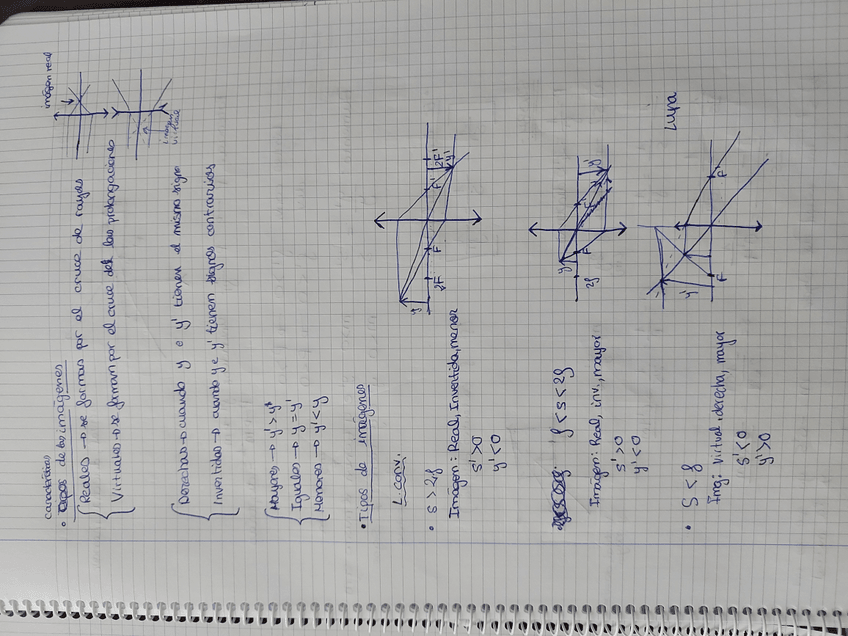 características
• Tipos de las imágenes
Reales → se forman por el cruce de rayos
Virtuales → se forman por el cruce de las prolongaciones
imágen real
imágen virtual
Derechas → cuando y e y' tienen el mismo signo
Invertidas → cuando y e y' tienen signos contrarios
Mayores → y' > y
Iguales → y = y'
Menores → y' < y
• Tipos de imágenes
L. conv.
• s > 2f
Imagen: Real, Invertida, menor
s' > 0
y' < 0
y 2F F F' 2F' y'
f < s < 2f
Imagen: Real, inv., mayor
s' > 0
y' < 0
2f y F F' y'
• s < f
Img: Virtual, derecha, mayor
s' < 0
y' > 0
F y' F'
Lupa